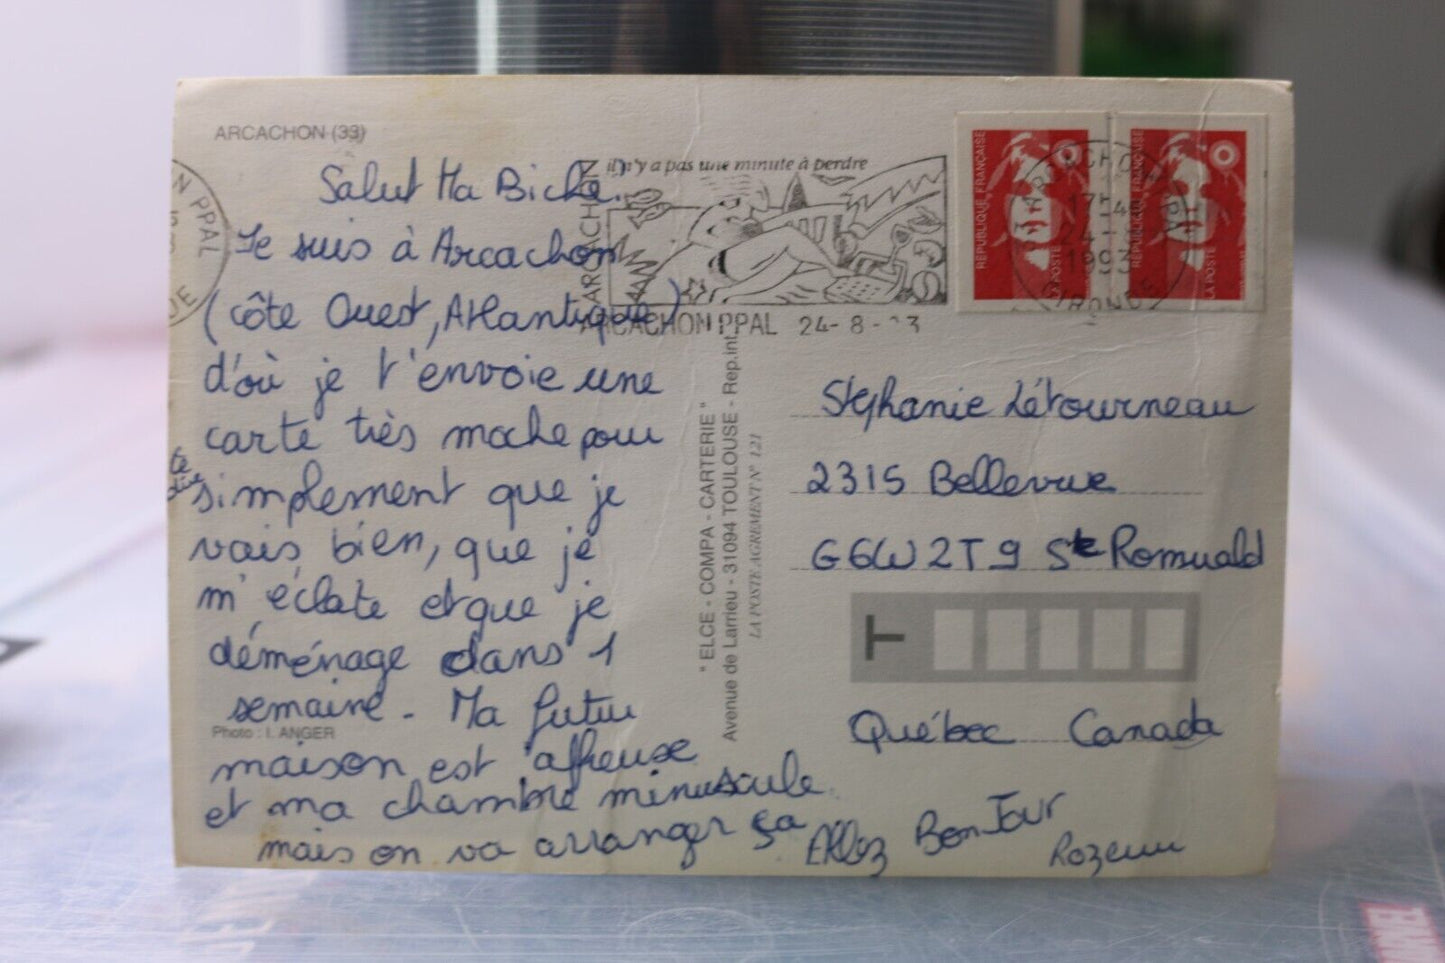 ARCACHON (33)
Salut Ma Biche.
Je suis à Arcachon
(côte Ouest, Atlantique)
d'où je t'envoie une
carte très moche pour
te dire
simplement que je
vais bien, que je
m'éclate et que je
déménage dans 1
semaine. Ma futur
maison est affreuse
et ma chambre minuscule
mais on va arranger ça
Allez Bonjour
Rozenn
Photo : I. ANGER
N PPAL
UE
il n'y a pas une minute à perdre
ARCACHON
ARCACHON PPAL 24-8-93
RÉPUBLIQUE FRANÇAISE
LA POSTE
RÉPUBLIQUE FRANÇAISE
LA POSTE
ARCACHON
17 H
24
1993
GIRONDE
" ELCE - COMPA - CARTERIE "
Avenue de Larrieu - 31094 TOULOUSE - Rep.int
LA POSTE AGREMENT N° 121
Stéphanie Létourneau
2315 Bellevue
G6W 2T9 Ste Romuald
T
Québec Canada
MARVEL